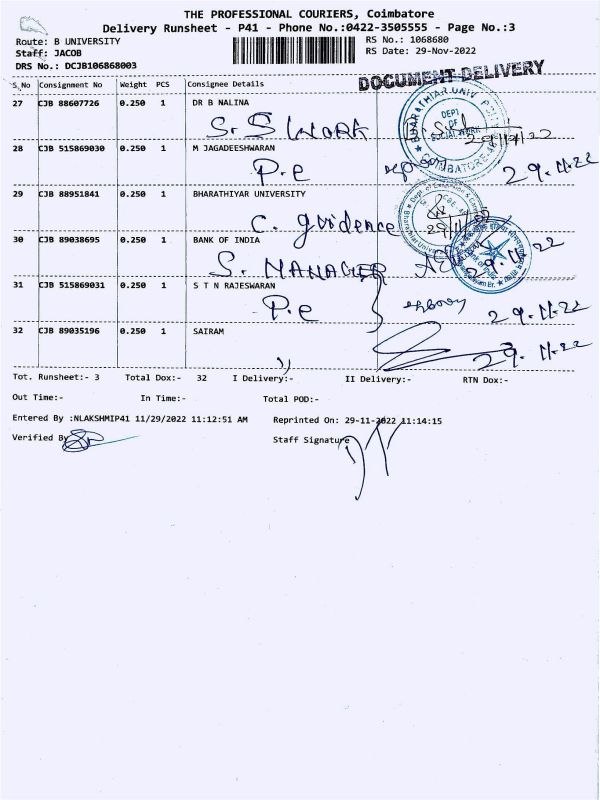 THE PROFESSIONAL COURIERS, Coimbatore
Delivery Runsheet - P41 - Phone No.:0422-3505555 - Page No.:3
Route: B UNIVERSITY RS No.: 1068680
Staff: JACOB RS Date: 29-Nov-2022
DRS No.: DCJB106868003
DOCUMENT DELIVERY
S_No Consignment No Weight PCS Consignee Details
27 CJB 88607726 0.250 1 DR B NALINA
S. S WORK 29/11/22
DEPT OF SOCIAL WORK
28 CJB 515869030 0.250 1 M JAGADEESHWARAN
P.e 29.11.22
29 CJB 88951841 0.250 1 BHARATHIYAR UNIVERSITY
C. guidence 29/11/22
30 CJB 89038695 0.250 1 BANK OF INDIA
S. MANAGER 29.11.22
31 CJB 515869031 0.250 1 S T N RAJESWARAN
P.e 29.11.22
32 CJB 89035196 0.250 1 SAIRAM
29.11.22
Tot. Runsheet:- 3 Total Dox:- 32 I Delivery:- II Delivery:- RTN Dox:-
Out Time:- In Time:- Total POD:-
Entered By :NLAKSHMIP41 11/29/2022 11:12:51 AM Reprinted On: 29-11-2022 11:14:15
Verified By Staff Signature